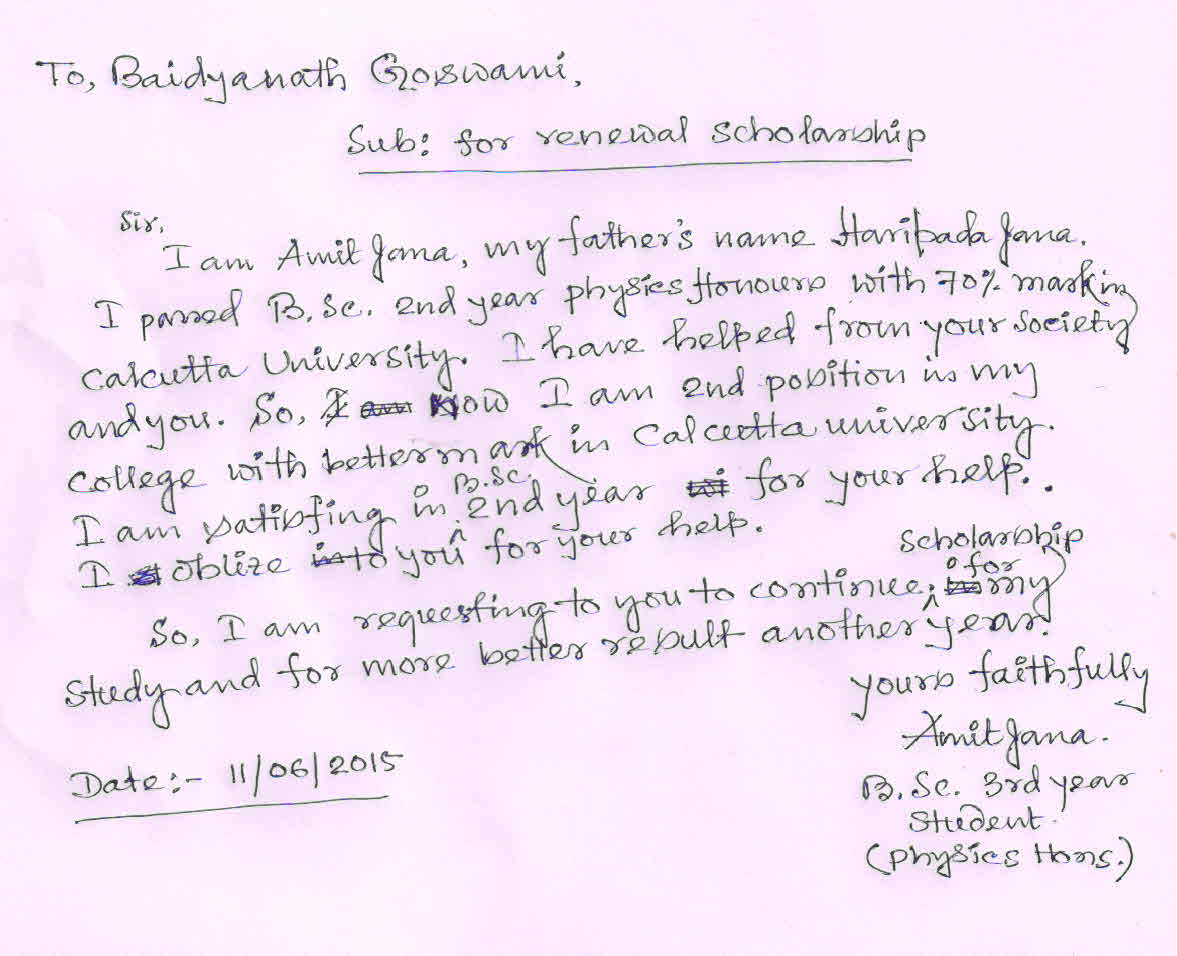 To, Baidyanath Goswami,
Sub: for renewal scholarship
Sir,
I am Amit Jana, my father's name Haripada Jana.
I passed B.Sc. 2nd year physics Honours with 70% mark in
Calcutta University. I have helped from your society
and you. So, I am Now I am 2nd position in my
college with better mark in Calcutta university.
I am satisfing in B.Sc. 2nd year for your help..
I oblize into you for your help.
So, I am requesting to you to continue; scholarship for my
study and for more better result another year.
yours faithfully
Amit Jana.
Date:- 11/06/2015
B.Sc. 3rd year
Student.
(physics Hons.)